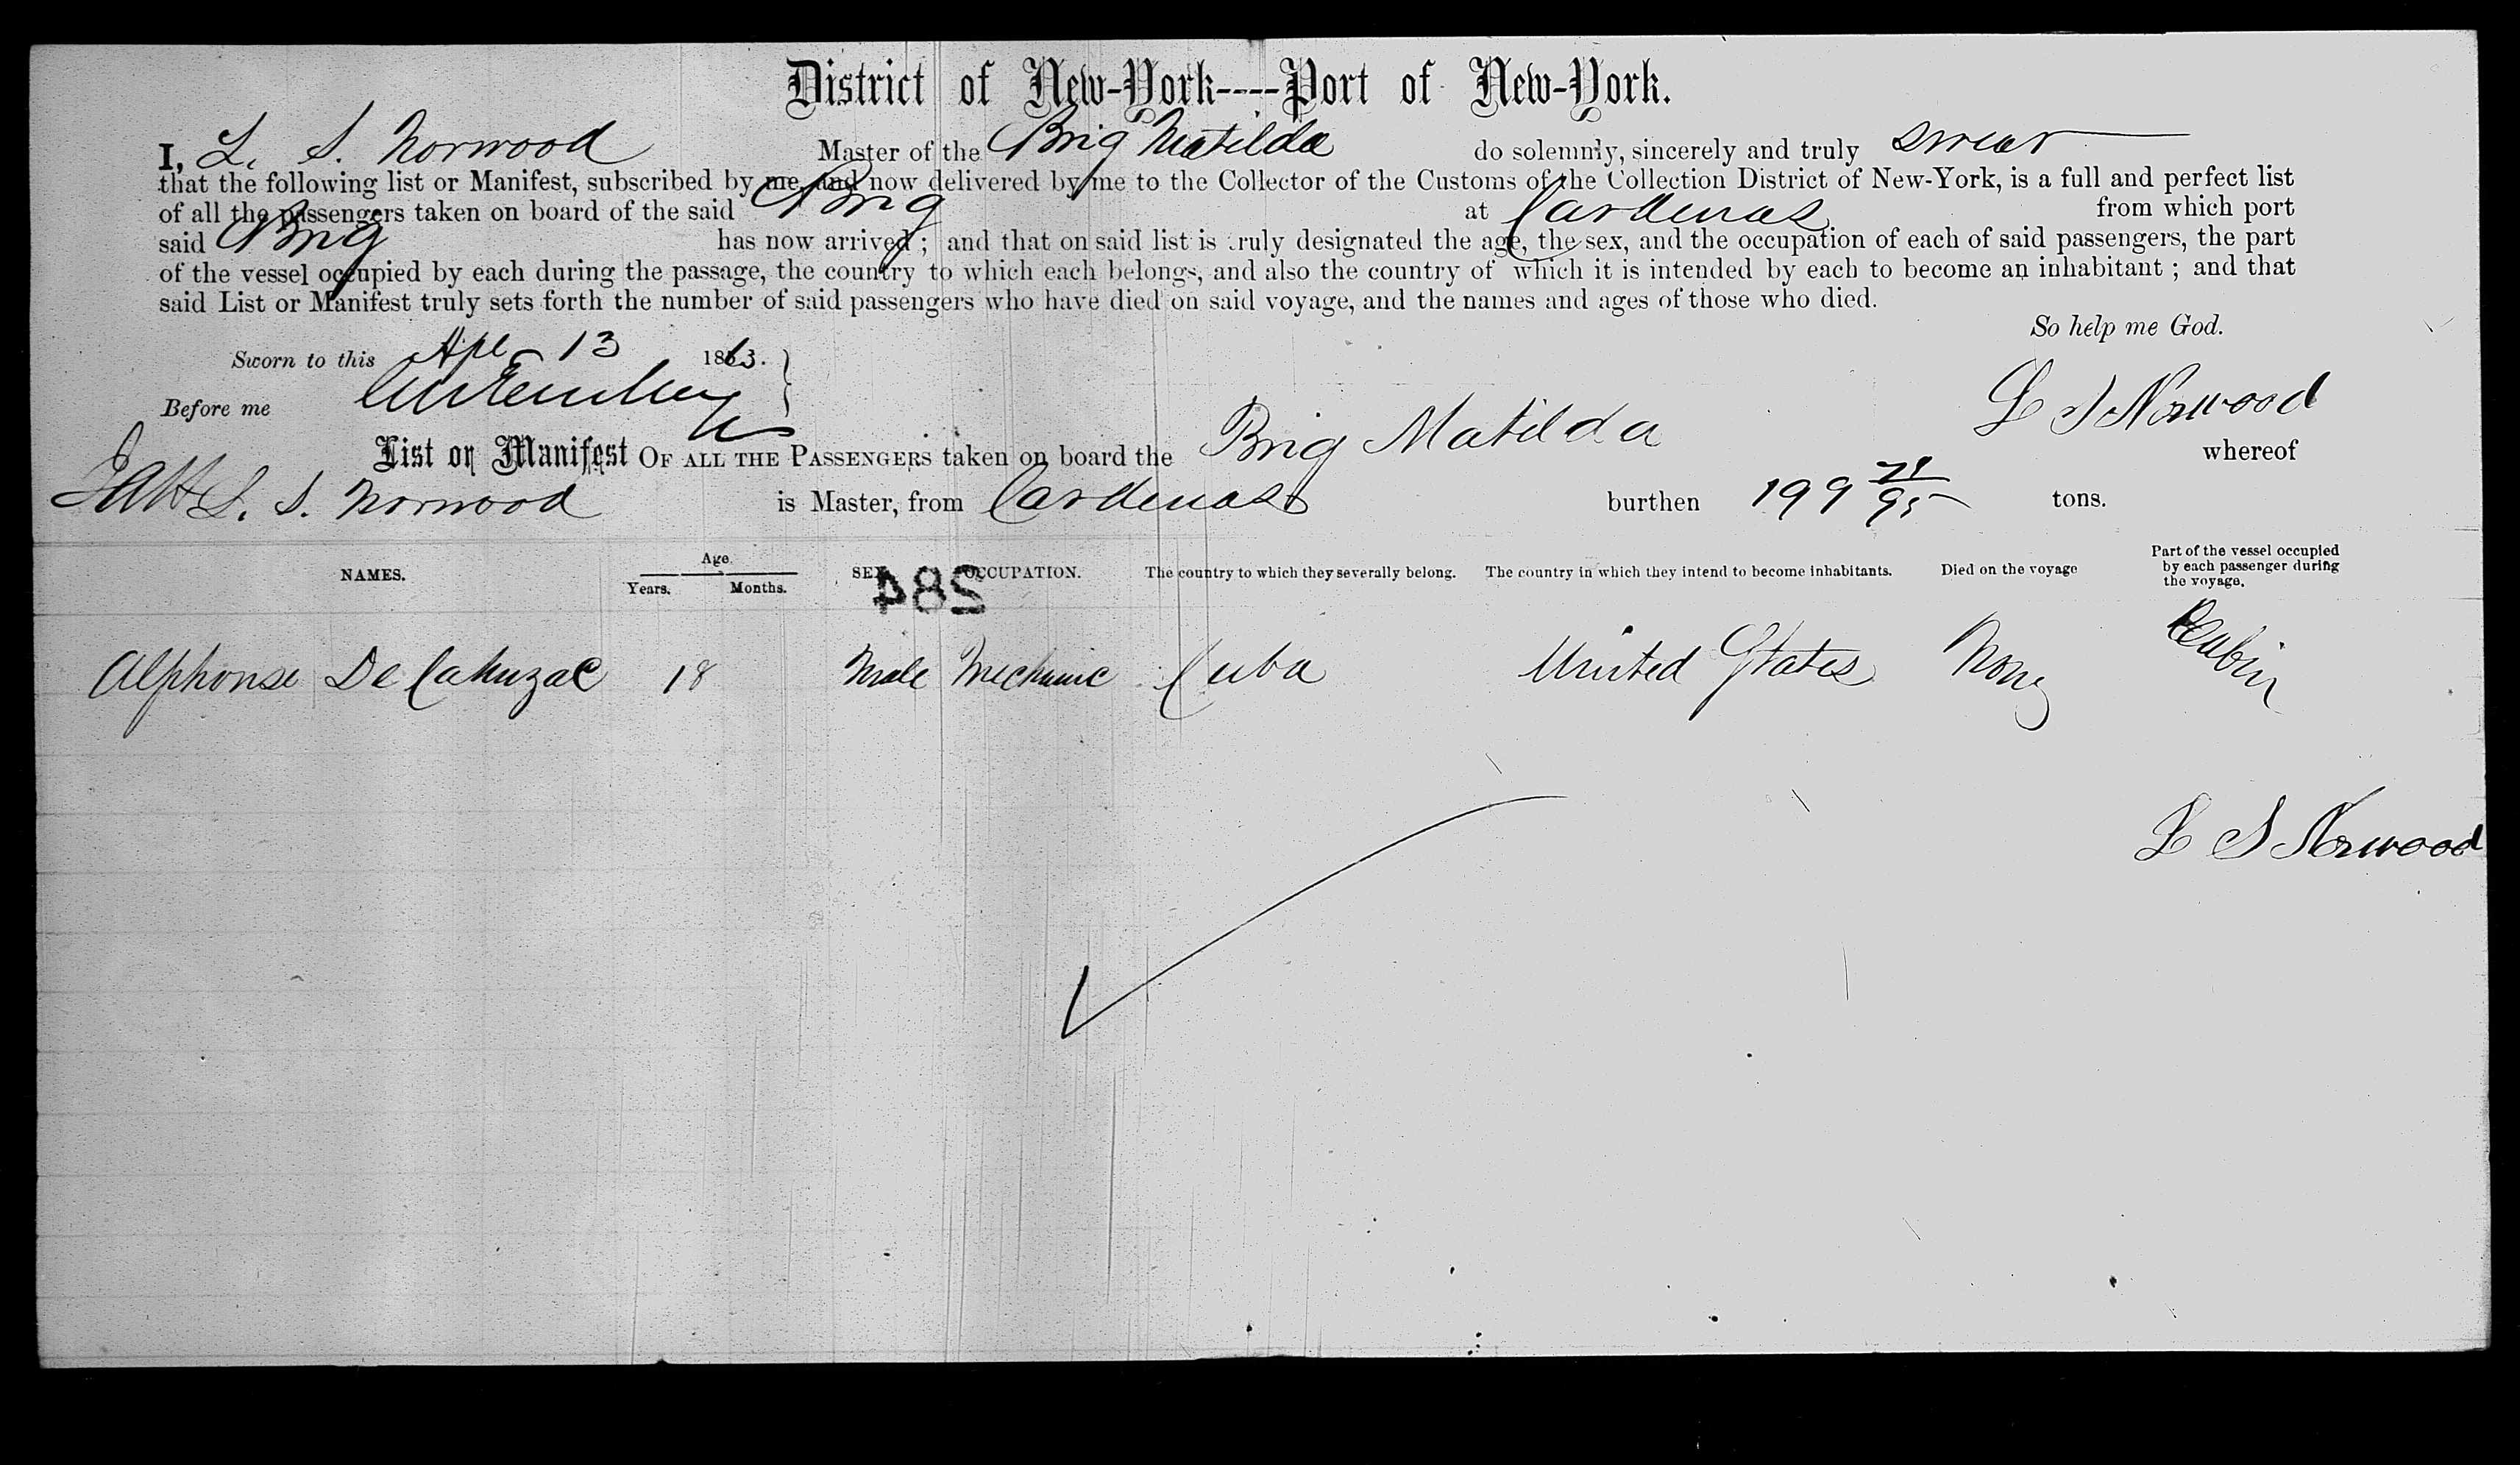 District of New-York----Port of New-York.
I, L. S. Norwood Master of the Brig Matilda do solemnly, sincerely and truly swear
that the following list or Manifest, subscribed by me, and now delivered by me to the Collector of the Customs of the Collection District of New-York, is a full and perfect list
of all the passengers taken on board of the said Brig at Cardenas from which port
said Brig has now arrived; and that on said list is truly designated the age, the sex, and the occupation of each of said passengers, the part
of the vessel occupied by each during the passage, the country to which each belongs, and also the country of which it is intended by each to become an inhabitant; and that
said List or Manifest truly sets forth the number of said passengers who have died on said voyage, and the names and ages of those who died.
So help me God.
Sworn to this Apl 13 1863.
Before me
L S Norwood
List or Manifest OF ALL THE PASSENGERS taken on board the Brig Matilda whereof
L. S. Norwood is Master, from Cardenas burthen 199 71/95 tons.
NAMES. Age. Years. Months. SEX OCCUPATION. The country to which they severally belong. The country in which they intend to become inhabitants. Died on the voyage Part of the vessel occupied by each passenger during the voyage.
284
Alphonse De Cahuzac 18 Male Mechanic Cuba United States None Cabin
L S Norwood